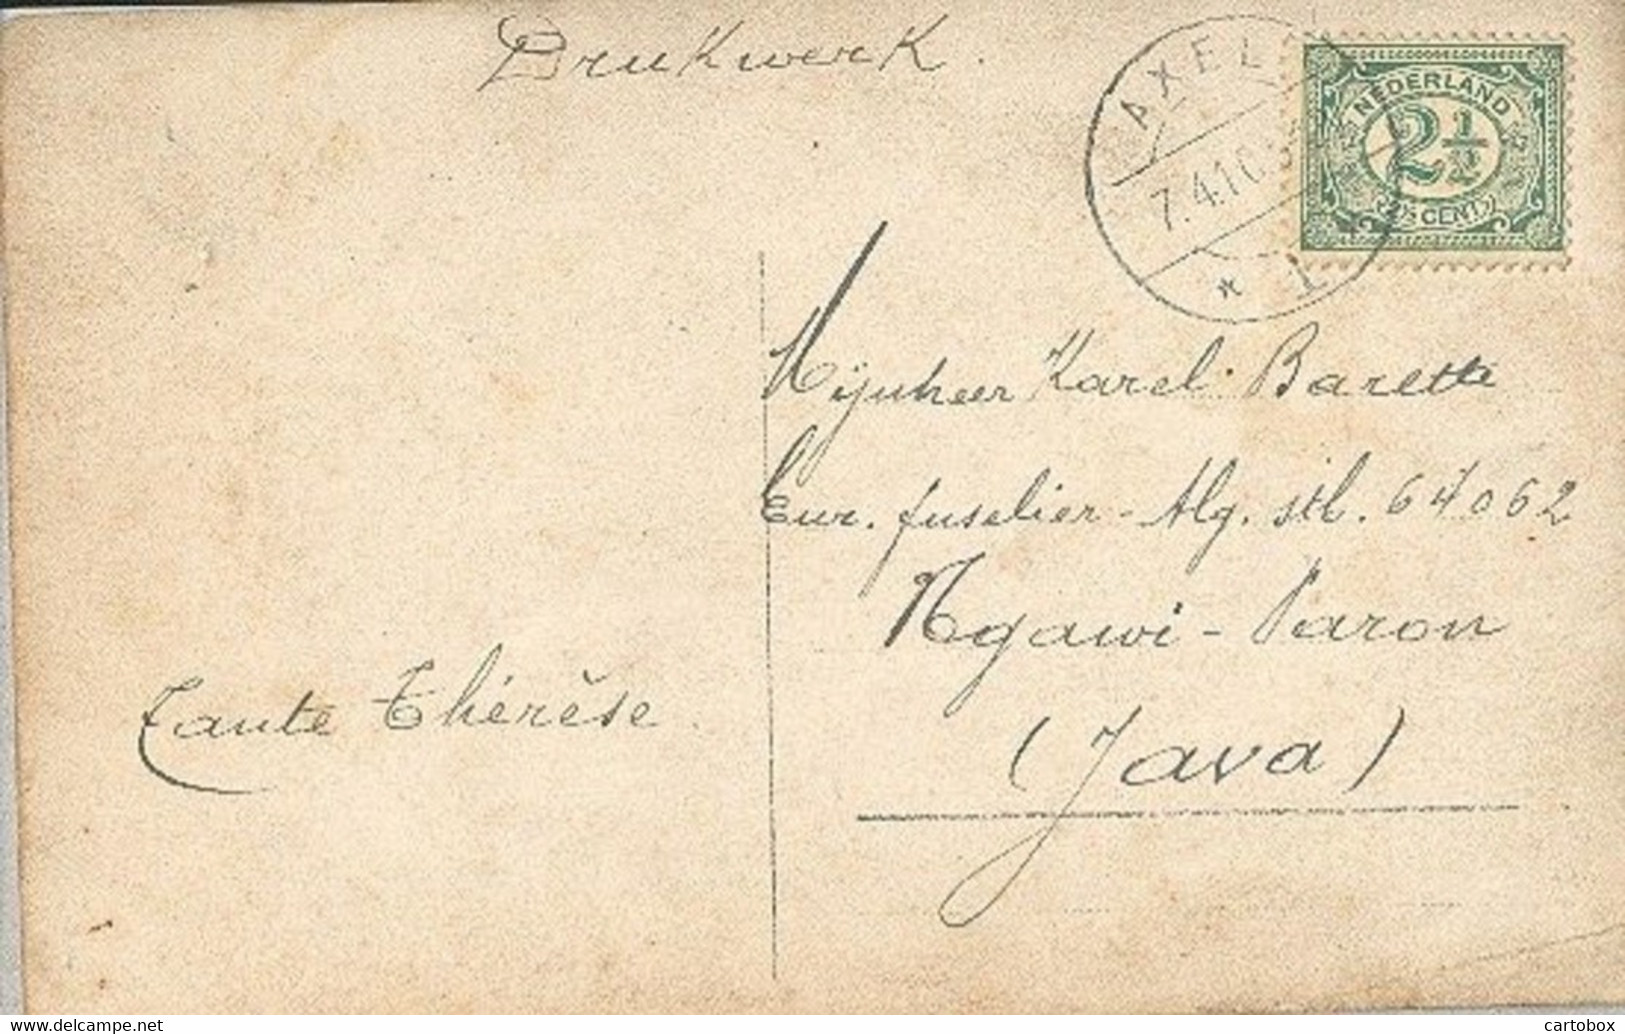 Drukwerk.
AXEL
7.4.10
* 1
NEDERLAND
2 1/2
(2½ CENT)
Mijnheer Karel Barette
Eur. fuselier - Alg. stb. 64062
Ngawi - Paron
(Java)
Tante Thérèse.
www.cartobox.com
cartobox